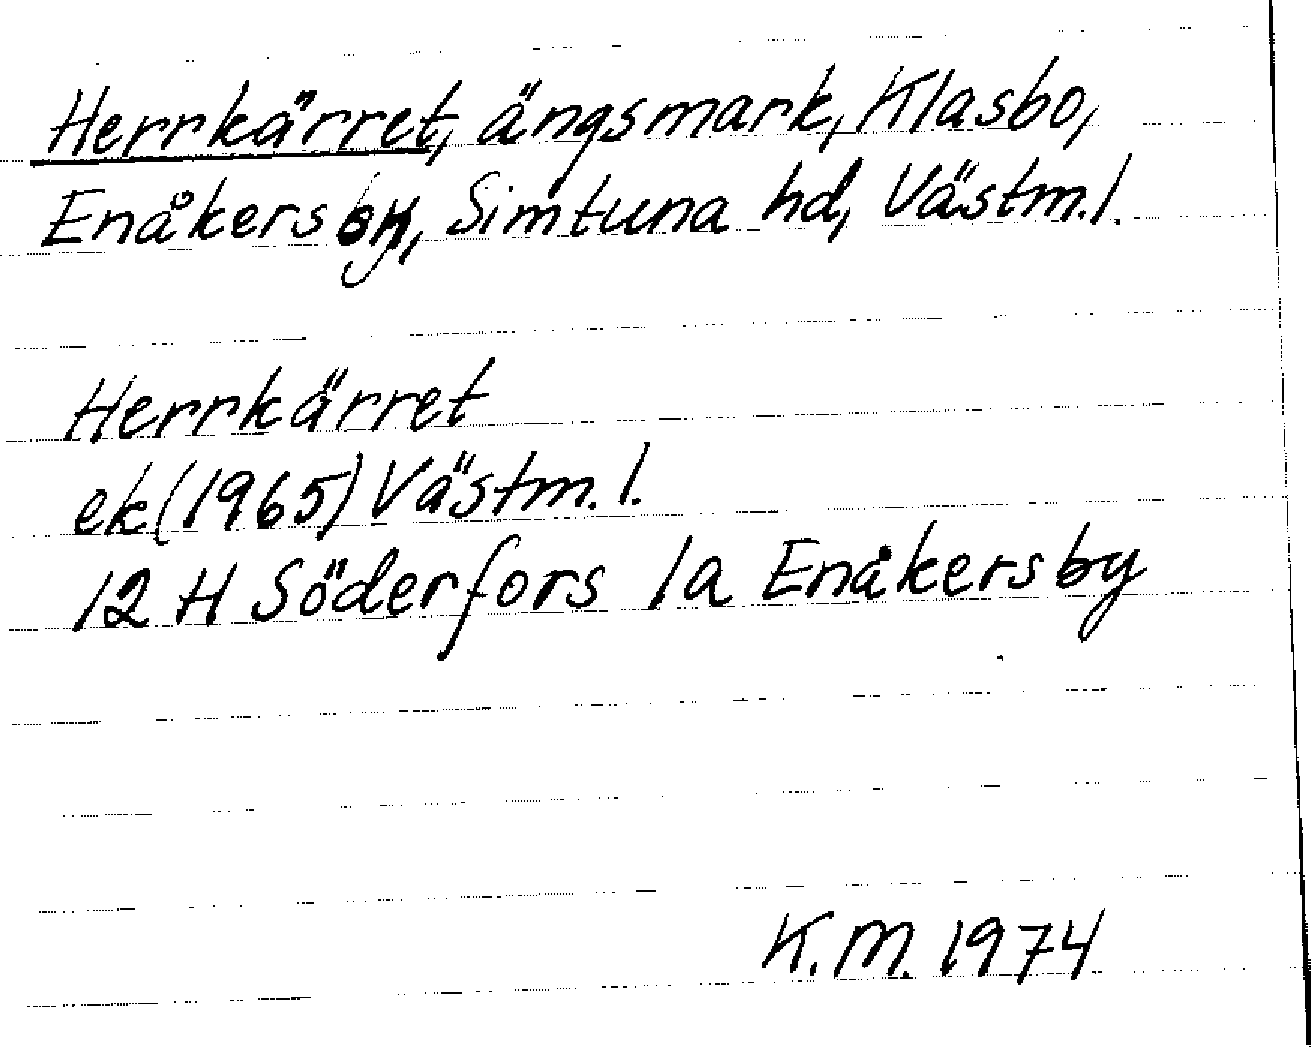 Herrkärret, ängsmark, Klasbo,
Enåkers sn, Simtuna hd, Västm.l.
Herrkärret
ek(1965) Västm.l.
12 H Söderfors 1a Enåkersby
K.M. 1974